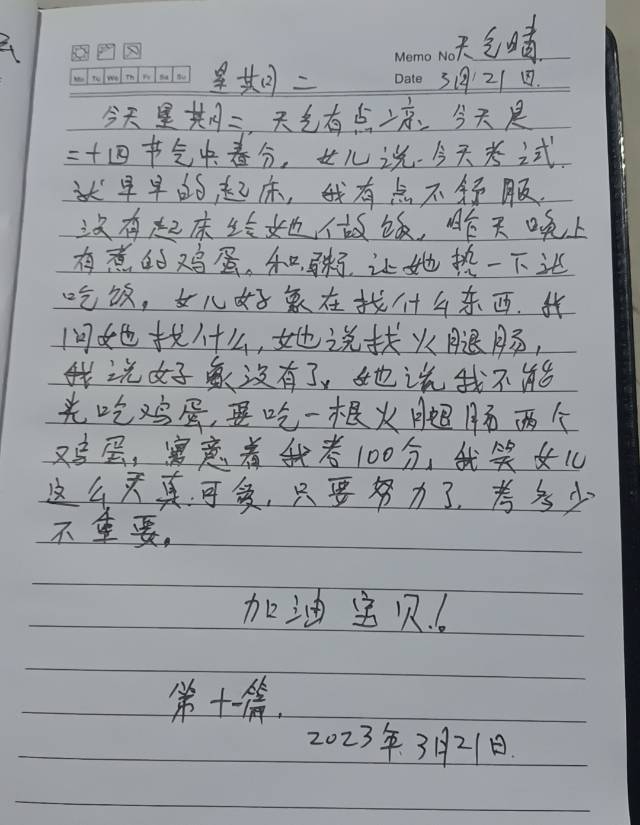 Memo No 天气晴
Mo Tu We Th Fr Sa Su 星期二 Date 3月21日.
今天星期二, 天气有点凉, 今天是
二十四节气中春分, 女儿说今天考试.
就早早的起床, 我有点不舒服.
没有起床给她做饭, 昨天晚上
有煮的鸡蛋。和粥, 让她热一下
吃饭, 女儿好象在找什么东西. 我
问她找什么, 她说找火腿肠,
我说好象没有了, 她说我不能
光吃鸡蛋, 要吃一根火腿肠两个
鸡蛋, 寓意着我考100分, 我笑女儿
这么天真.可爱, 只要努力了, 考多少
不重要。
加油宝贝!
第十一篇.
2023年3月21日.